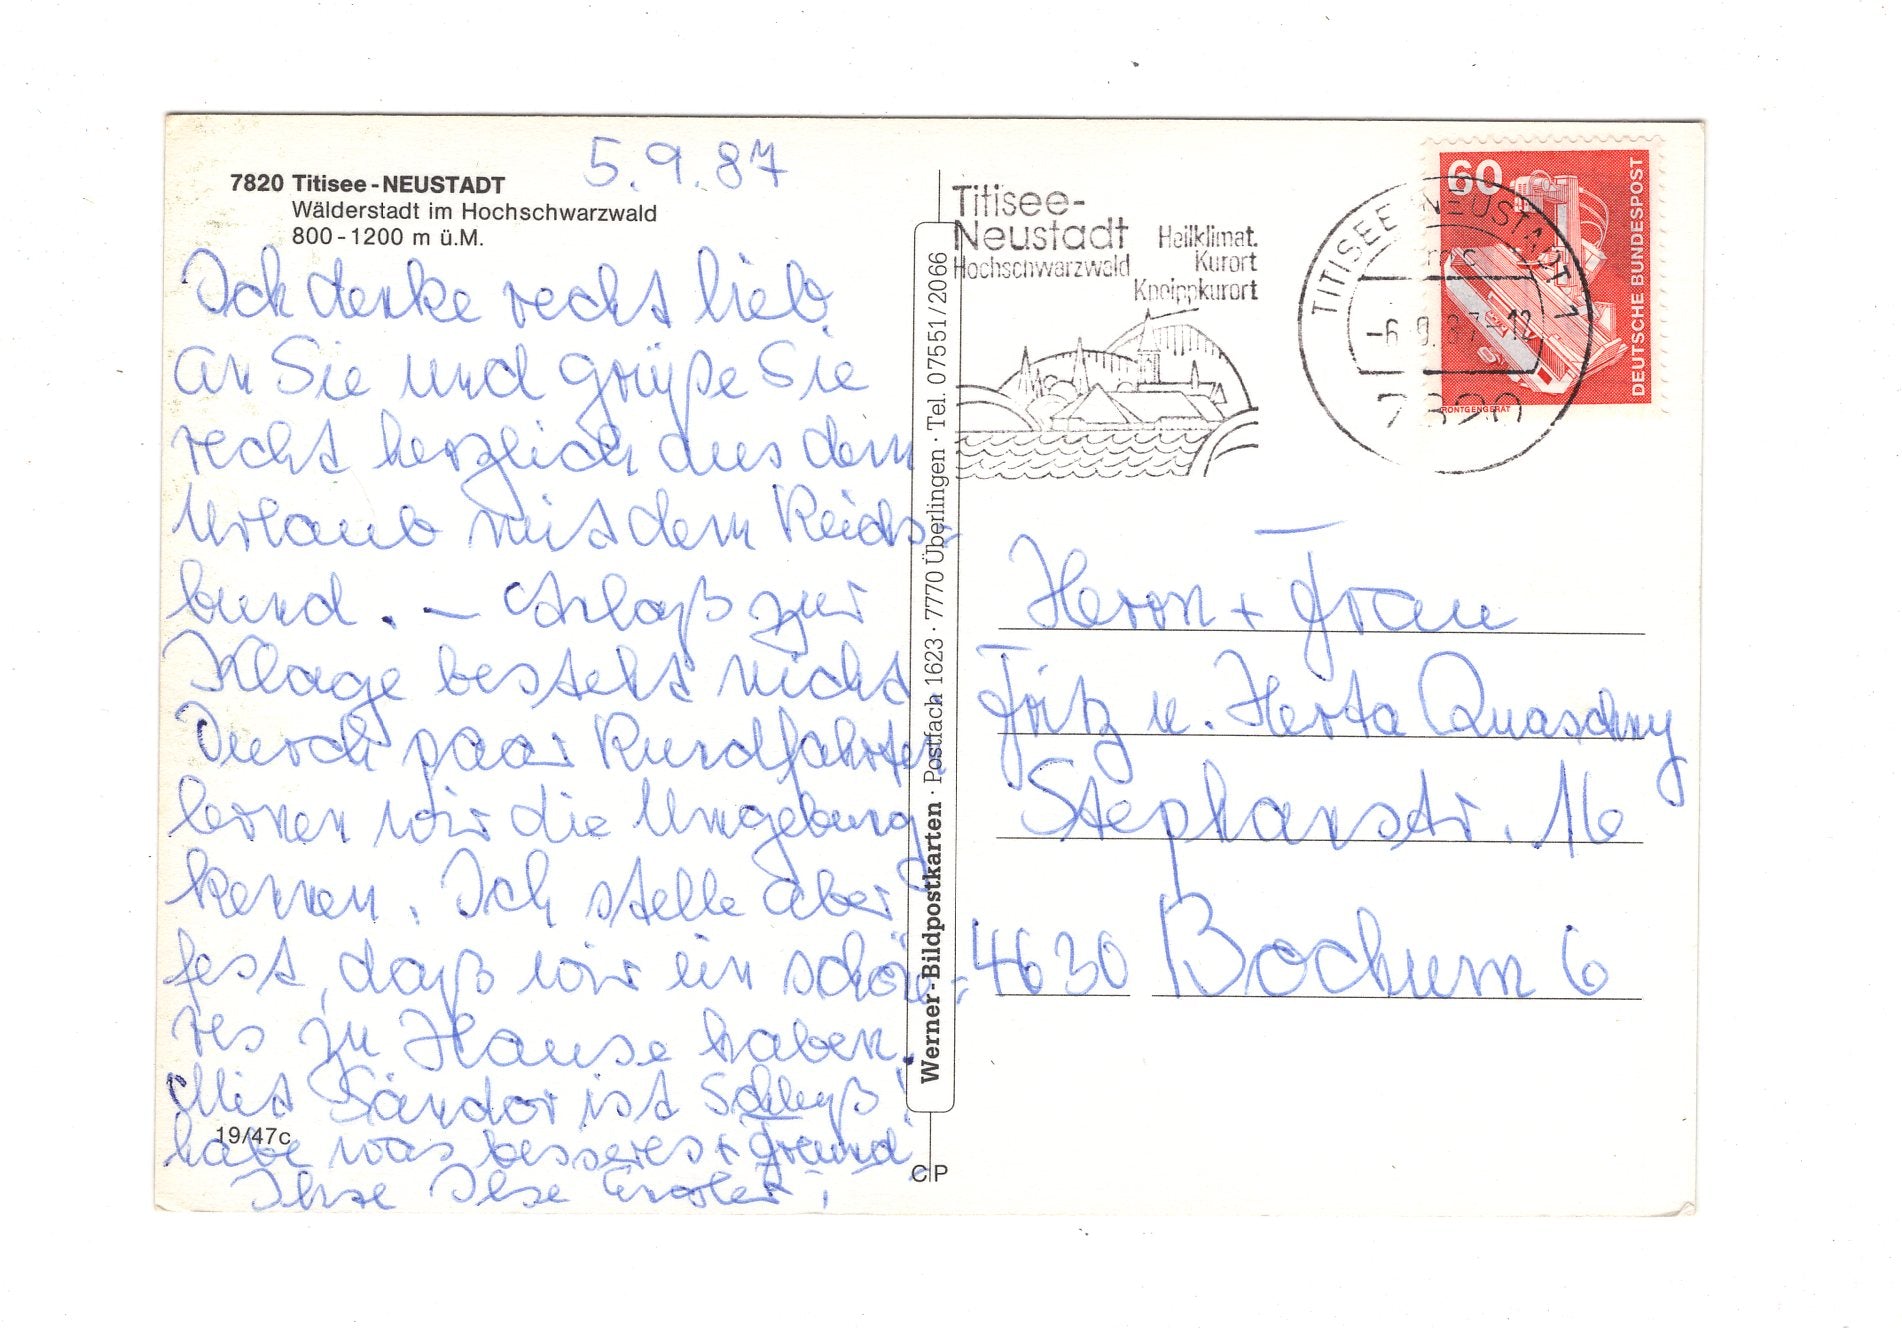 7820 Titisee-NEUSTADT
Wälderstadt im Hochschwarzwald
800-1200 m ü.M.
5.9.87
Ich denke recht lieb
an Sie und grüße Sie
recht herzlich aus dem
Urlaub mit dem Reichs-
bund. – Anlaß zur
Klage besteht nicht
Durch paar Rundfahrten
lernen wir die Umgebung
kennen. Ich stelle aber
fest, daß wir ein schöne-
res zu Hause haben.
Mit Sándor ist Schluß!
habe was besseres
Ihre Ilse
19/47c
Werner-Bildpostkarten · Postfach 1623 · 7770 Überlingen · Tel. 07551/2066
CP
Titisee-
Neustadt
Hochschwarzwald
Heilklimat.
Kurort
Kneippkurort
TITISEE-NEUSTADT 1
-6.9.87-12
7820
60
DEUTSCHE BUNDESPOST
RÖNTGENGERÄT
Herrn + Frau
Fritz u. Herta Quaschny
Stephanstr. 16
4630 Bochum 6